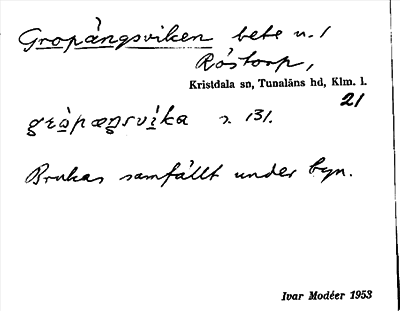 Gropängsviken bete n. 1
Råstorp,
Kristdala sn, Tunaläns hd, Klm. l.
21
gràpæŋsvìka s. 131.
Brukas samfällt under byn.
Ivar Modéer 1953